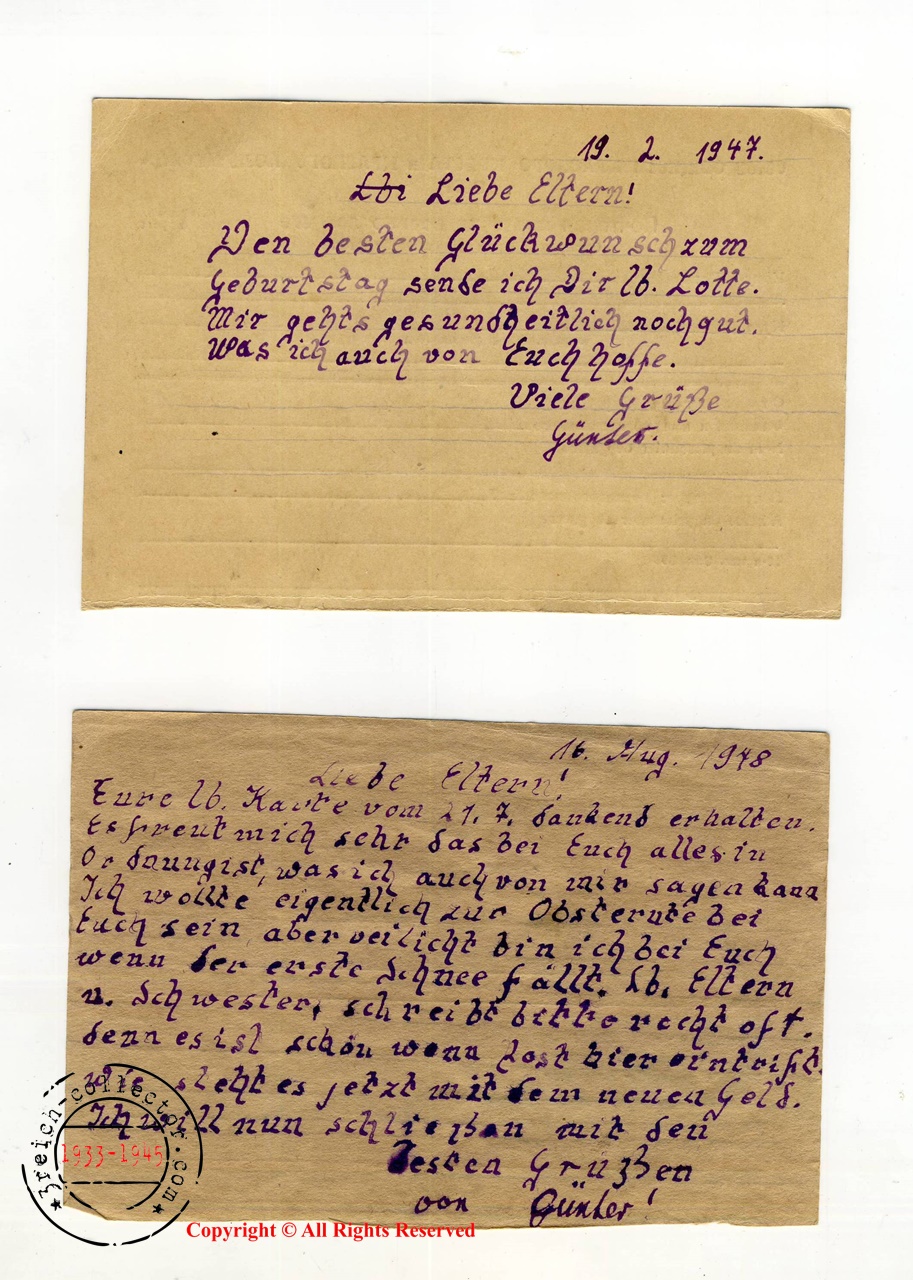 19. 2. 1947.
Lbi Liebe Eltern!
Den besten Glückwunsch zum
Geburtstag sende ich Dir lb. Lotte.
Mir gehts gesundheitlich noch gut.
Was ich auch von Euch hoffe.
Viele Grüße
Günter.
16. Aug. 1948
Liebe Eltern!
Eure lb. Karte vom 21. 7. dankend erhalten.
Es freut mich sehr das bei Euch alles in
Ordnung ist, was ich auch von mir sagen kann
Ich wollte eigentlich zur Obsternte bei
Euch sein, aber veilicht bin ich bei Euch
wenn der erste Schnee fällt. Lb. Eltern
u. Schwester, schreibt bitte recht oft.
denn es ist schön wenn Post hier eintrifft.
Wie steht es jetzt mit dem neuen Geld.
Ich will nun schließen mit den
besten Grüßen
von Günter!
3reich-collector.com
1933-1945
Copyright © All Rights Reserved